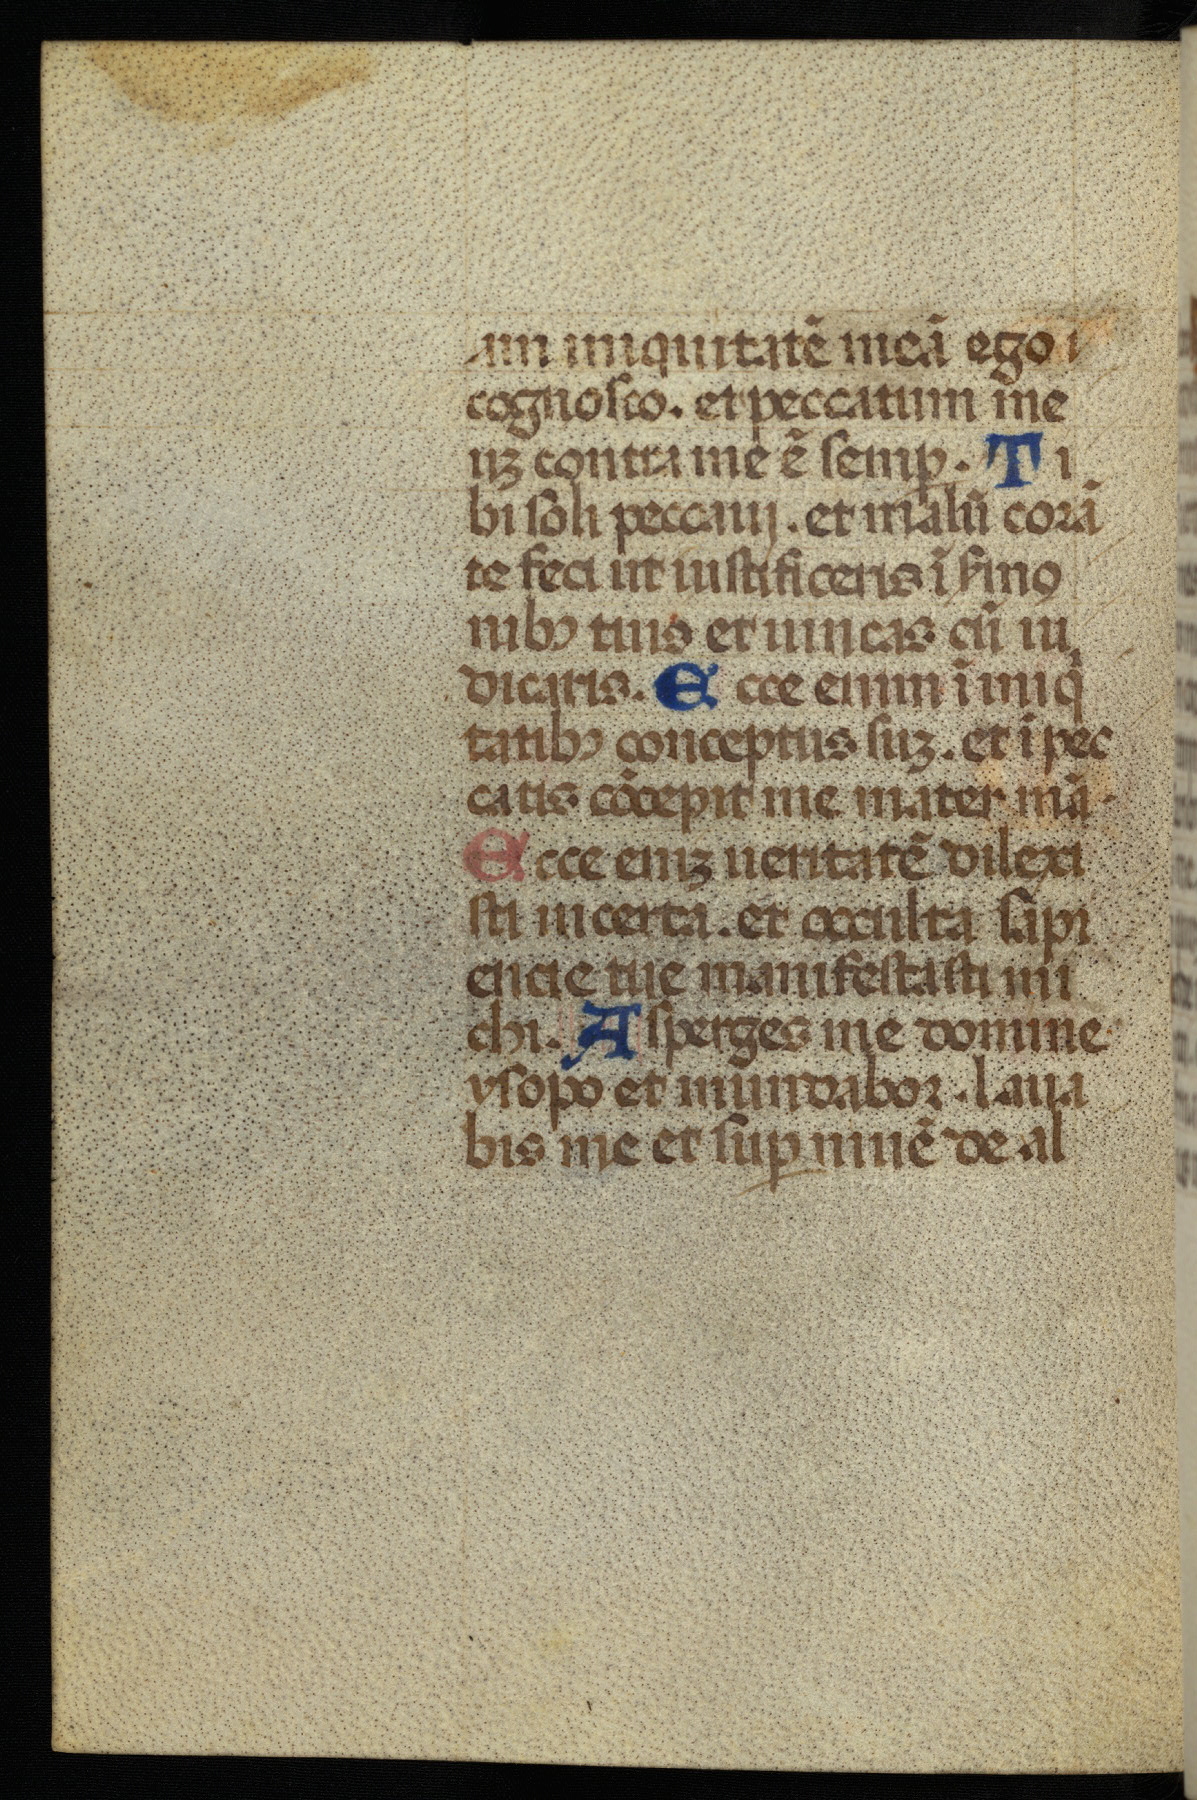 am iniquitatē meā ego i
cognosco. et peccatum me
uʒ contra me ē semp̱. Ti
bi soli peccauj. et malū corā
te feci ut iustificeris ī ẜmo
nibꝰ tuis et uincas cū iu
dicaris. Ecce enim ī iniq̄
tatibꝰ conceptus suʒ. et ī pec
catis cōcepit me mater mā.
Ecce eniʒ ueritatē dilexi
sti incerta. et occulta sapi
encie tue manifestasti mi
chi. Asperges me domine
ysopo et mundabor. laua
bis me et sup̱ niuē de al